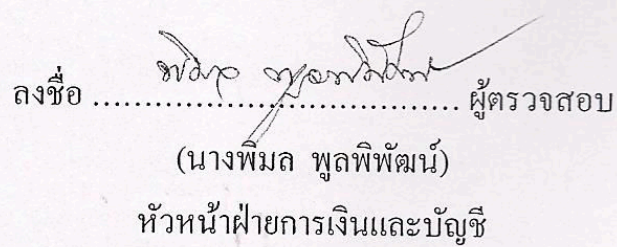 ลงชื่อ .................................... ผู้ตรวจสอบ
(นางพิมล พูลพิพัฒน์)
หัวหน้าฝ่ายการเงินและบัญชี